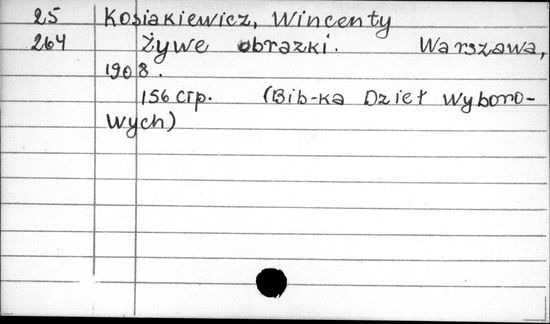 25 Kosiakiewicz, Wincenty
264 Żywe obrazki. Warszawa,
1908.
156 стр. (Bib-ka Dzieł wyboro-
wych)